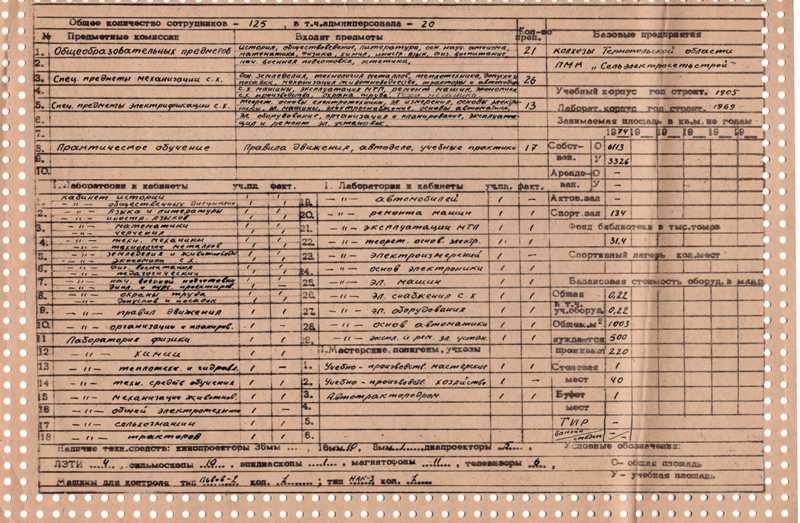 Общее количество сотрудников - 125, в т.ч.админперсонала - 20
№ Предметные комиссии Входят предметы Кол-во преп. Базовые предприятия
1. Общеобразовательных предметов - история, обществоведение, литература, осн. науч. атеизма, 21 колхозы Тернопольской области
2. математика, физика, химия, иностр. язык, физ. воспитание,
нач. военная подготовка, эстетика, ПМК „Сельэлектросетьстрой"
3. Спец. предметы механизации с.х. технология металлов, теплотехника, допуски и 26
посадки, механизация животноводства, тракторы и автомоб.
4. с.х. машины, эксплуатация МТП, ремонт машин, экономика Учебный корпус год строит. 1905
с.х. производства, охрана труда
5. Спец. предметы электрификации с.х. теорет. основы электротехники, эл. измерения, основы электро- 13 Лаборат. корпус год строит. 1969
6. эл. машины, основы автоматики,
эл. оборудование, организация и планирование, эксплуата- Занимаемая площадь в кв.м. по годам
7. ция и ремонт эл. установок. 1974 19 19 19 19 19
8. Практическое обучение Правила движения, автодело, учебные практики 17 Собст- О 6113
9. вен. У 3326
10. Арендо- О -
ван. У -
I. Лаборатории и кабинеты уч.пл. факт. I. Лаборатории и кабинеты уч.пл. факт. Актов.зал -
1. кабинет истории 19. -"- автомобилей 1 - Спорт.зал 134
-"- общественных дисциплин
2. -"- языка и литературы 20. -"- ремонта машин 1 1 Фонд библиотеки в тыс.томов
-"- иностр. языков
3. -"- математики 21. -"- эксплуатации МТП 1 1 31,4
-"- черчения
4. -"- техн. механики 22. -"- теорет. основ. электр. 1 1
-"- технологии металлов
5. -"- земледелия и животновод. 23. -"- электроизмерений 1 - Спортивный лагерь кол.мест
-"- экономики с.х.
6. -"- физ. воспитания 24. -"- основ электроники 1 1 -
-"- педагогический
7. -"- нач. военной подготовки 25. -"- эл. машин 1 1 Балансовая стоимость оборуд. в млн.р
-"- дипл. и курс. проектиров.
8. -"- охраны труда 26. -"- эл. снабжения с.х 1 1 Общая 0,22
-"- допусков и посадок
9. -"- правил движения 1 1 27. -"- эл. оборудования 1 1 уч.оборуд. 0,22
10. -"- организации и планиров. 1 - 28. -"- основ автоматики 1 1 Общеж.м² 1003
11 Лаборатория физики 1 1 29. -"- эксп. и рем. эл. устан. 1 1 нуждается 500
12 -"- химии 1 1 II. Мастерские, полигоны, учхозы проживает 220
13 -"- теплотехн. и гидравл. 1 - 1. Учебно-производств. мастерские 1 1 Столовая 1
14 -"- техн. средств обучения 1 1 2. Учебно-производств. хозяйство 1 - мест 40
15 -"- механизации животнов. 1 1 3. Автотрактородром 1 1 Буфет 1
16 -"- общей электротехники 1 - 4. мест
17 -"- сельхозмашин 1 1 5. ТИР -
18 -"- тракторов 1 1 6.
Наличие техн.средств: кинопроекторы 35мм ..., 16мм 10, 8мм 1, диапроекторы 5. Условные обозначения:
ЛЭТИ 4, фильмоскопы 10, эпидиаскопы 1, магнитофоны 11, телевизоры 6 О- общая площадь
Машины для контроля тип Львов-2 кол. ; тип кол. У - учебная площадь